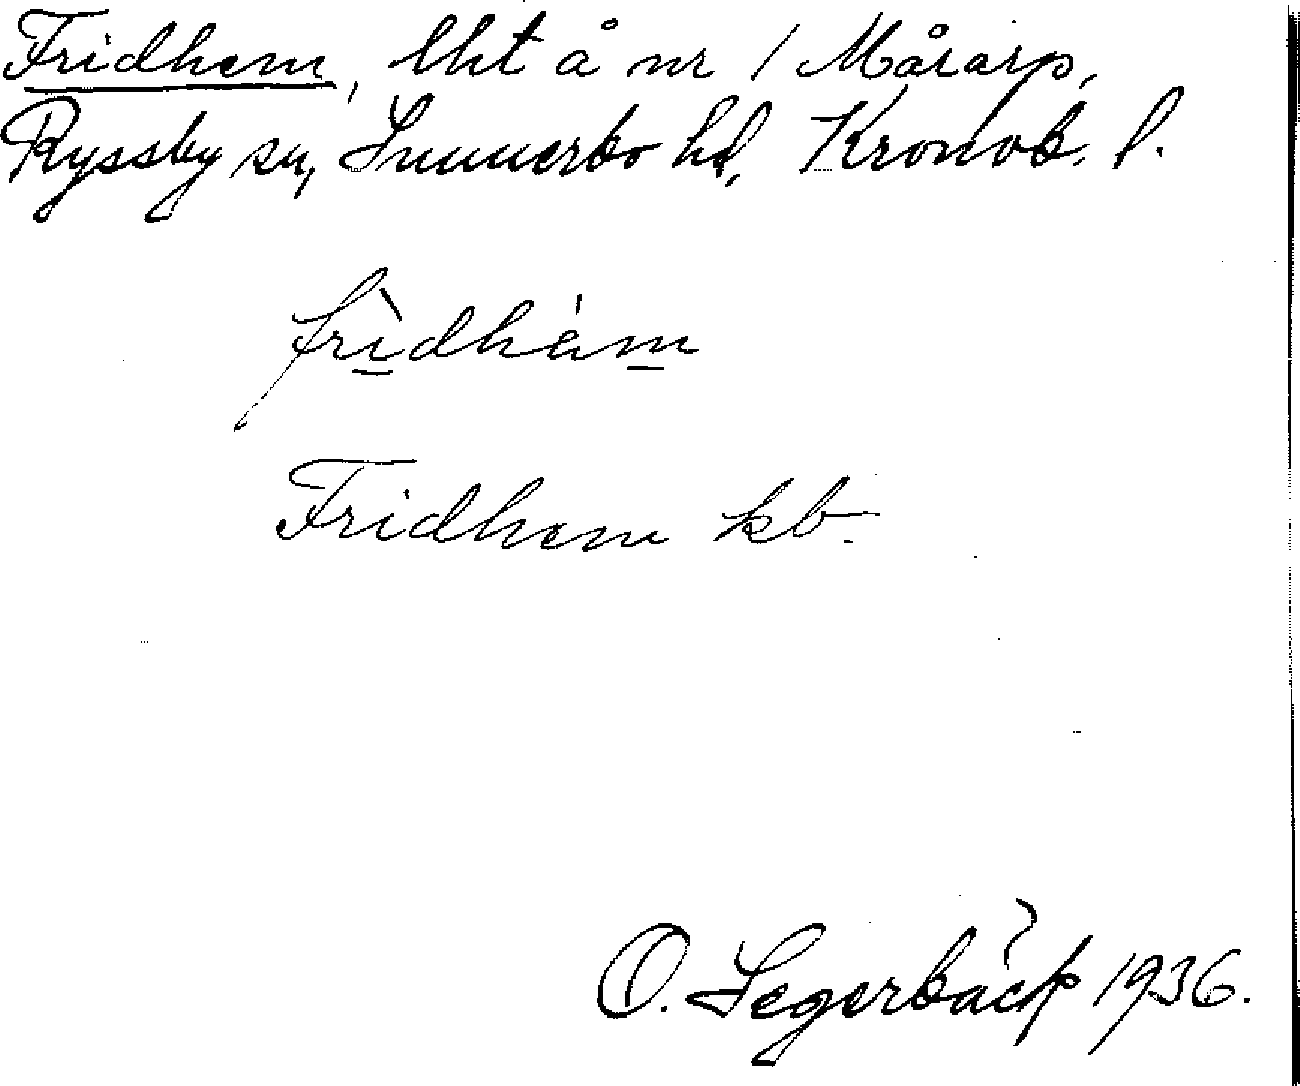 Fridhem, lht å nr 1 Mårarp,
Ryssby sn, Sunnerbo hd, Kronob. l.
frìdhàm
Fridhem kb.
O. Segerbäck 1936.